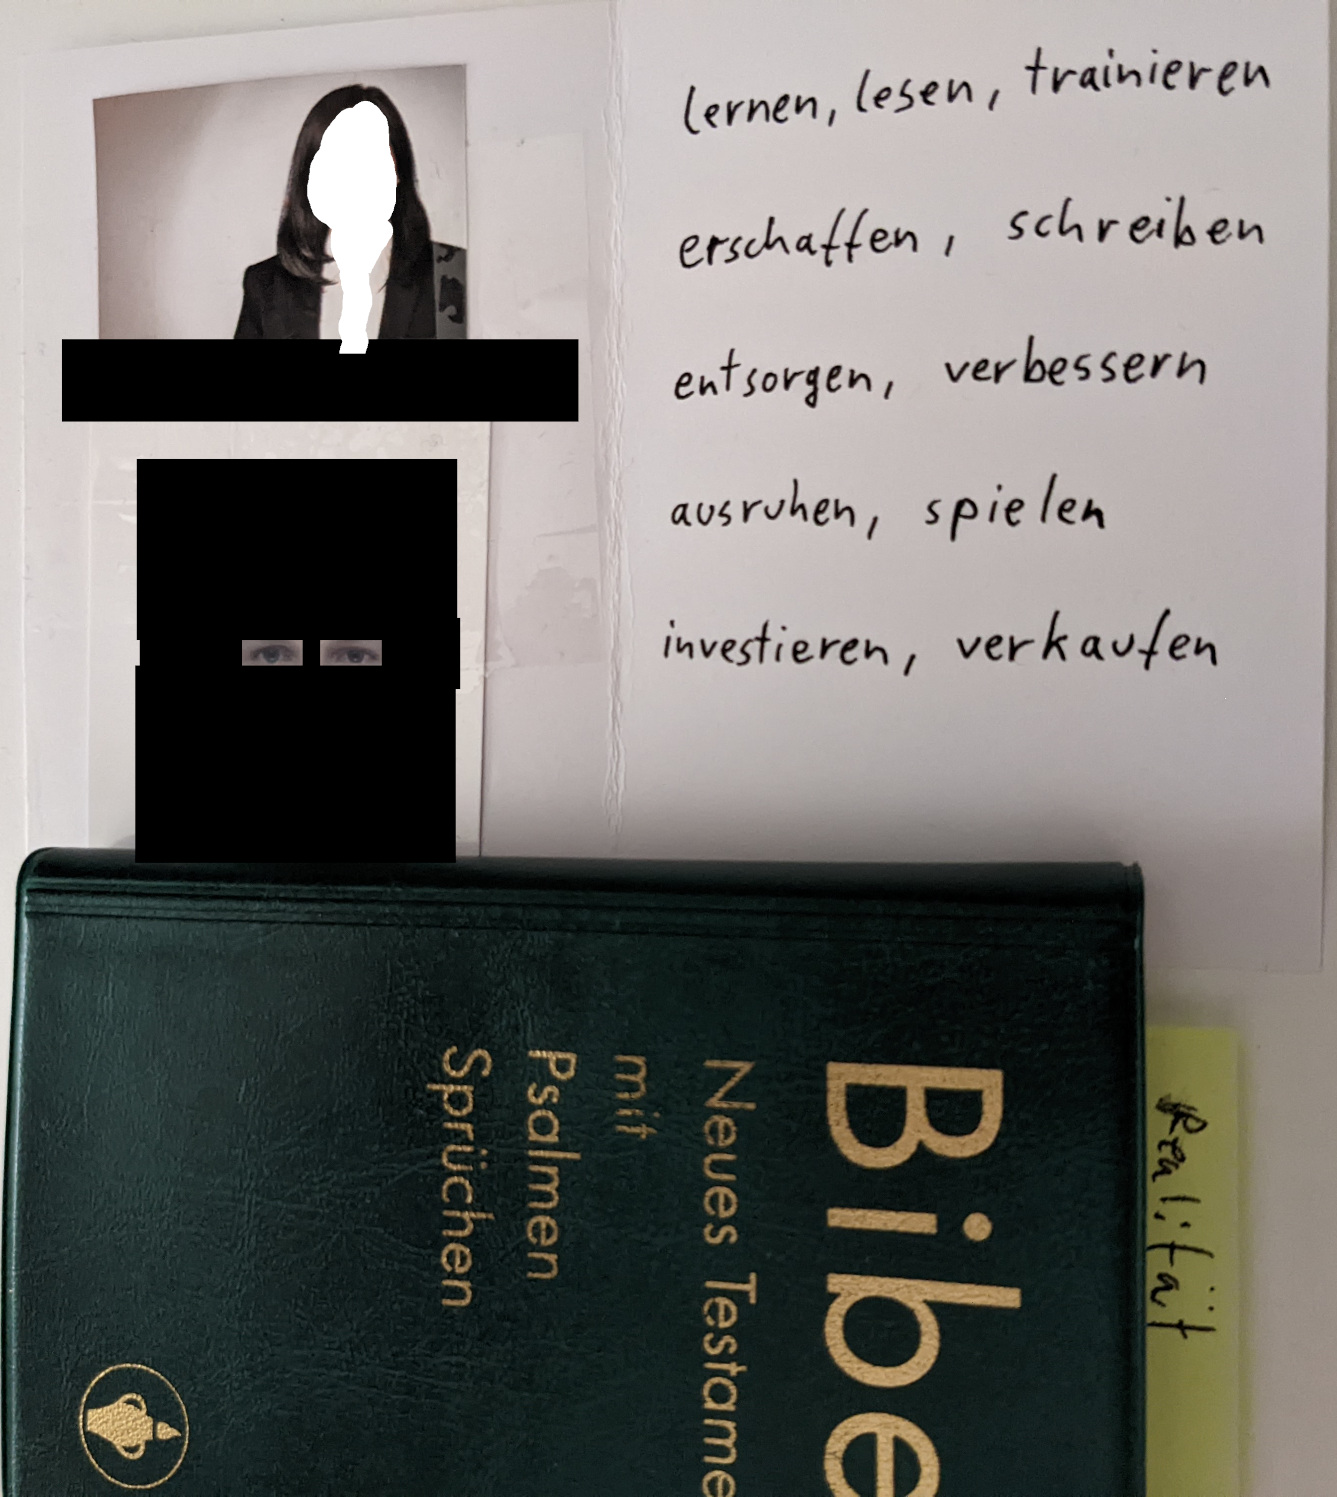 lernen, lesen, trainieren
erschaffen, schreiben
entsorgen, verbessern
ausruhen, spielen
investieren, verkaufen
Bibe
Neues Testame
mit
Psalmen
Sprüchen
Realität